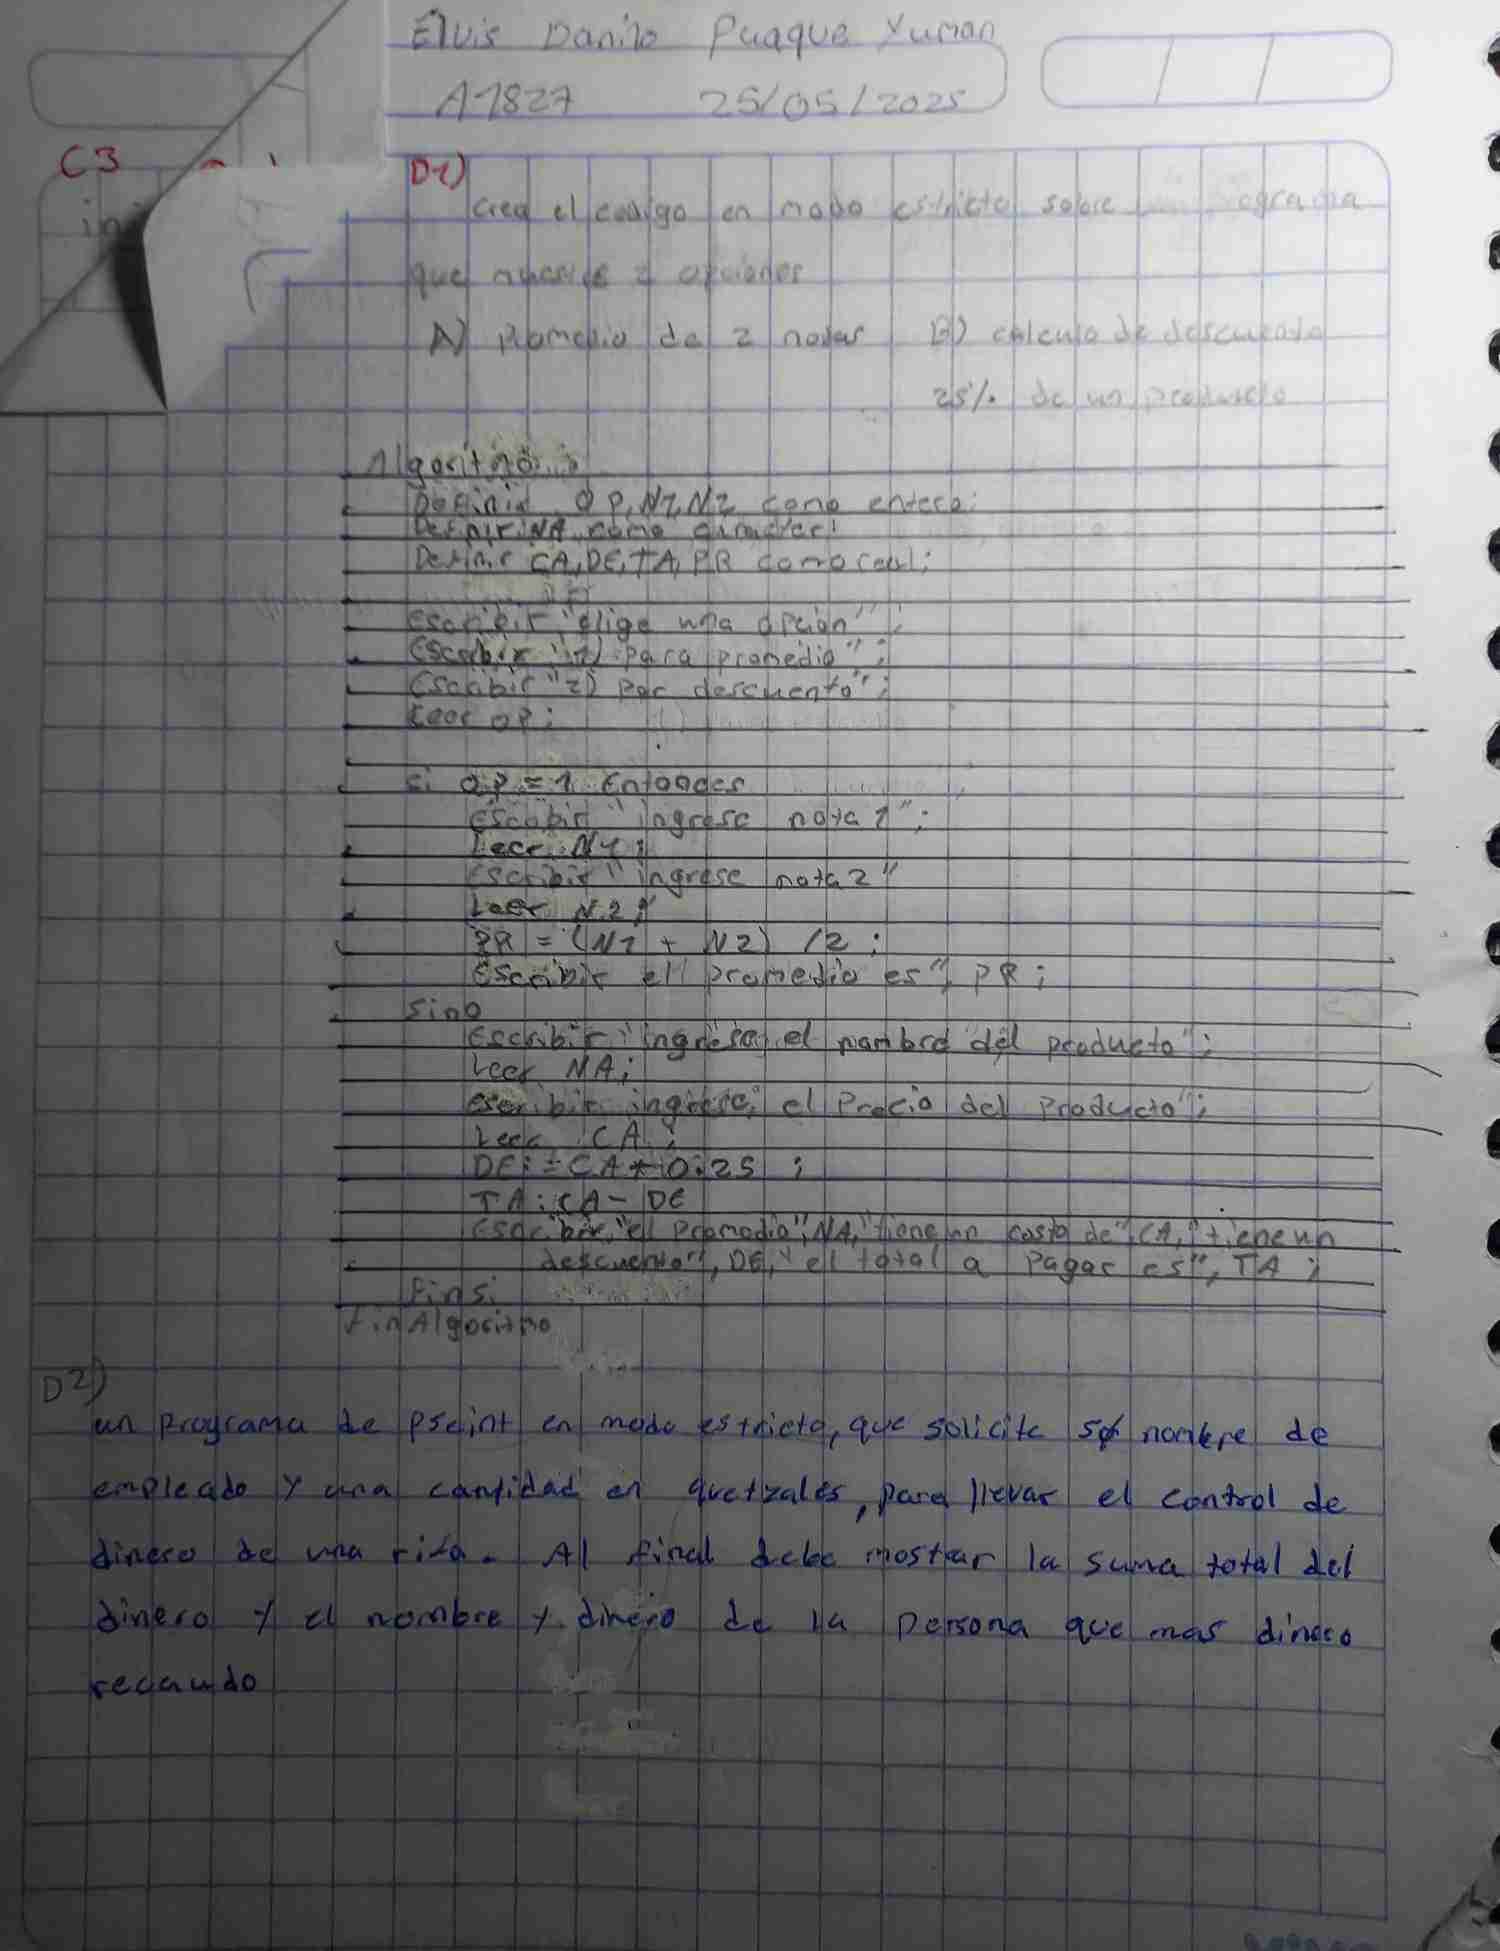 Elvis Danilo Puaque Yuman
A1827 25/05/2025
C3
D1)
Crea el codigo en modo estricto sobre
que muestre 2 opciones
A) Promedio de 2 notas B) calculo de descuento
25% de un producto
Algoritmo
Definir OP, N1, N2 como entero;
Definir NA como caracter;
Definir CA, DE, TA, PR como real;
Escribir "elige una opcion";
Escribir "1) para promedio";
Escribir "2) por descuento";
Leer OP;
si OP = 1 Entonces
Escribir "ingrese nota 1";
Leer N1;
Escribir "ingrese nota 2"
Leer N2;
PR = (N1 + N2) /2;
Escribir el promedio es", PR;
sino
Escribir "ingrese el nombre del producto";
Leer NA;
Escribir ingrese el Precio del Producto";
Leer CA;
DE:=CA*0.25 ;
TA:CA- DE
Escribir "el Promedio", NA, "tiene un costo de", CA, "tiene un
descuento", DE, "el total a Pagar es", TA;
finsi
finAlgoritmo
D2)
un programa de pseint en modo estricto, que solicite 5 nombre de
empleado y una cantidad en quetzales, para llevar el control de
dinero de una rifa. Al final debe mostrar la suma total del
dinero y el nombre y dinero de la persona que mas dinero
recaudo